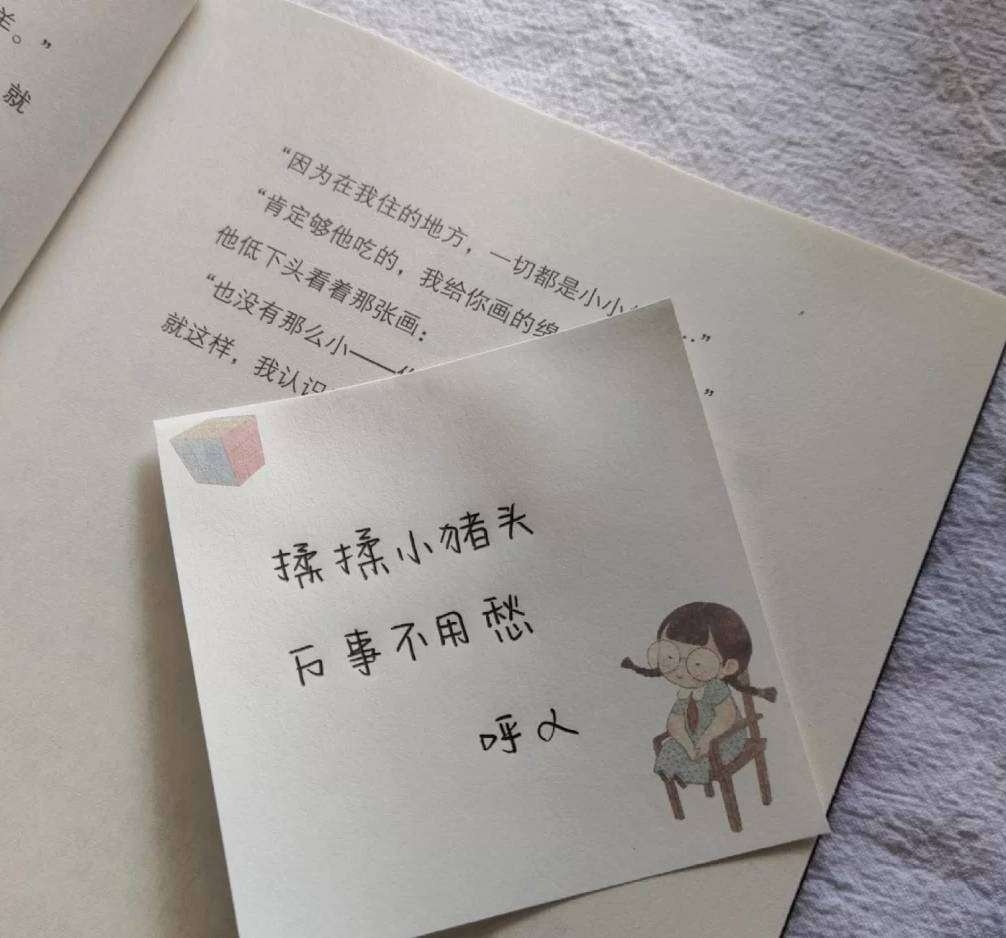 羊。”
就
“因为在我住的地方，一切都是小小
“肯定够他吃的，我给你画的绵
他低下头看着那张画：
“也没有那么小——
就这样，我认识
..”
”
揉揉小猪头
万事不用愁
呼